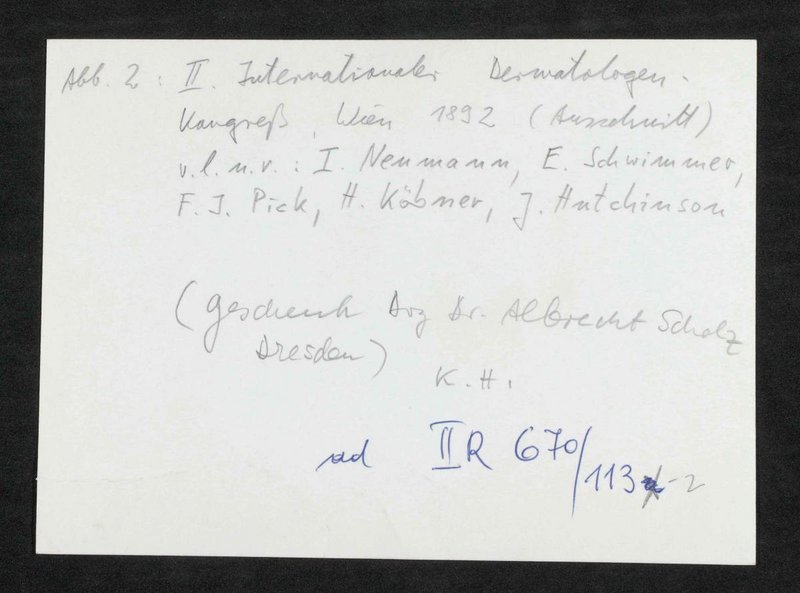 Abb. 2 : II. Internationaler Dermatologen-
Kongreß, Wien 1892 (Ausschnitt)
v.l.n.r.: I. Neumann, E. Schwimmer,
F. J. Pick, H. Köbner, J. Hutchinson
(Geschenk Doz Dr. Albrecht Scholz
Dresden)
K. H.
ad II R 670/113 -2